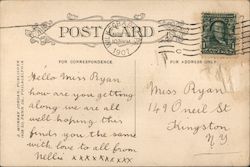 POST CARD
1907
FOR CORRESPONDENCE
FOR ADDRESS ONLY
Hello Miss Ryan
how are you getting
along we are all
well hoping this
finds you the same
with love to all from
Nellie xxxxxxxxx
Miss Ryan
149 Oneil St
Kingston
NY